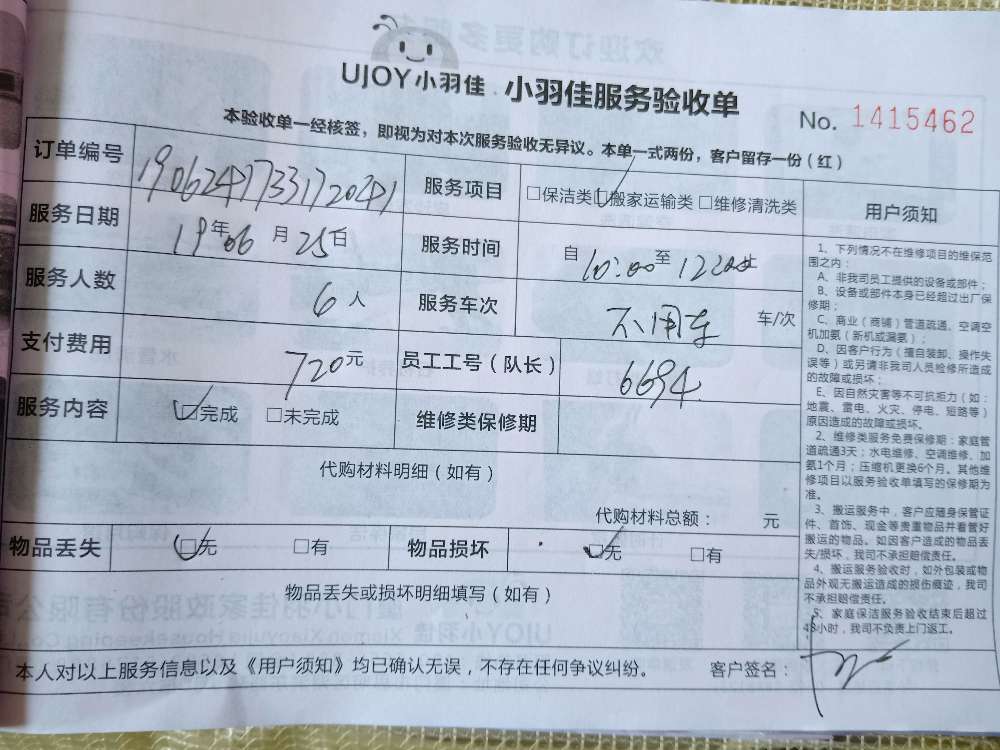 UJOY小羽佳 小羽佳服务验收单
No. 1415462
本验收单一经核签，即视为对本次服务验收无异议。本单一式两份，客户留存一份（红）
订单编号
服务项目 □保洁类 ☑搬家运输类 □维修清洗类
服务日期 19年06月25日
服务时间 自 10:00 至
服务人数 6人
服务车次 不用车 车/次
支付费用 720元
员工工号（队长） 6694
服务内容 ☑完成 □未完成
维修类保修期
代购材料明细（如有）
代购材料总额： 元
物品丢失 ☑无 □有
物品损坏 ☑无 □有
物品丢失或损坏明细填写（如有）
本人对以上服务信息以及《用户须知》均已确认无误，不存在任何争议纠纷。 客户签名：
用户须知
1、下列情况不在维修项目的维保范
围之内：
A、非我司员工提供的设备或部件；
B、设备或部件本身已经超过出厂保
修期；
C、商业（商铺）管道疏通、空调空
机加氨（新机或漏氨）；
D、因客户行为（擅自装卸、操作失
误等）或另请非我司人员检修所造成
的故障或损坏；
E、因自然灾害等不可抗拒力（如：
地震、雷电、火灾、停电、短路等）
原因造成的故障或损坏。
2、维修类服务免费保修期：家庭管
道疏通3天；水电维修、空调维修、加
氨1个月；压缩机更换6个月。其他维
修项目以服务验收单填写的保修期为
准。
3、搬运服务中，客户应随身保管证
件、首饰、现金等贵重物品并看管好
搬运的物品。如因客户造成的物品丢
失/损坏，我司不承担赔偿责任。
4、搬运服务验收时，如外包装或物
品外观无搬运造成的损伤痕迹，我司
不承担赔偿责任。
5、家庭保洁服务验收结束后超过
48小时，我司不负责上门返工。